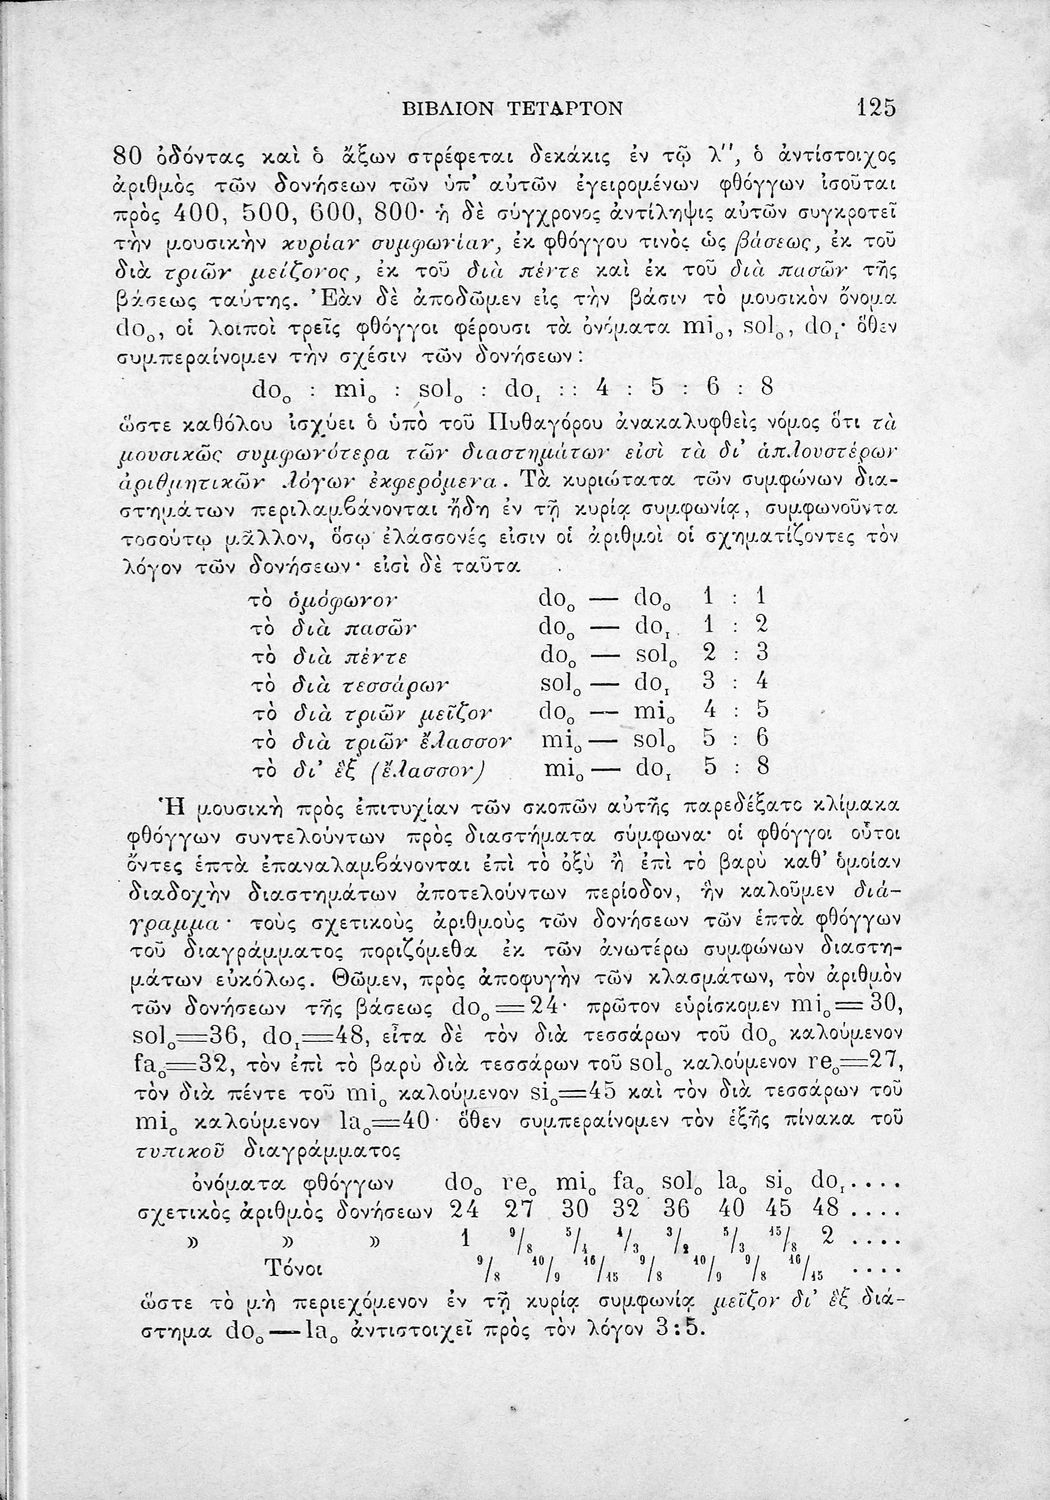 ΒΙΒΛΙΟΝ ΤΕΤΑΡΤΟΝ 125
80 ὀδόντας καὶ ὁ ἄξων στρέφεται δεκάκις ἐν τῷ λ'', ὁ ἀντίστοιχος
ἀριθμὸς τῶν δονήσεων τῶν ὑπ' αὐτῶν ἐγειρομένων φθόγγων ἰσοῦται
πρὸς 400, 500, 600, 800· ἡ δὲ σύγχρονος ἀντίληψις αὐτῶν συγκροτεῖ
τὴν μουσικὴν κυρίαν συμφωνίαν, ἐκ φθόγγου τινὸς ὡς βάσεως, ἐκ τοῦ
διὰ τριῶν μείζονος, ἐκ τοῦ διὰ πέντε καὶ ἐκ τοῦ διὰ πασῶν τῆς
βάσεως ταύτης. Ἐὰν δὲ ἀποδῶμεν εἰς τὴν βάσιν τὸ μουσικὸν ὄνομα
do₀, οἱ λοιποὶ τρεῖς φθόγγοι φέρουσι τὰ ὀνόματα mi₀, sol₀, do₁· ὅθεν
συμπεραίνομεν τὴν σχέσιν τῶν δονήσεων:
do₀ : mi₀ : sol₀ : do₁ :: 4 : 5 : 6 : 8
ὥστε καθόλου ἰσχύει ὁ ὑπὸ τοῦ Πυθαγόρου ἀνακαλυφθεὶς νόμος ὅτι τὰ
μουσικῶς συμφωνότερα τῶν διαστημάτων εἰσὶ τὰ δι' ἁπλουστέρων
ἀριθμητικῶν λόγων ἐκφερόμενα. Τὰ κυριώτατα τῶν συμφώνων δια-
στημάτων περιλαμβάνονται ἤδη ἐν τῇ κυρίᾳ συμφωνίᾳ, συμφωνοῦντα
τοσούτῳ μᾶλλον, ὅσῳ ἐλάσσονές εἰσιν οἱ ἀριθμοὶ οἱ σχηματίζοντες τὸν
λόγον τῶν δονήσεων· εἰσὶ δὲ ταῦτα
τὸ ὁμόφωνον do₀ — do₀ 1 : 1
τὸ διὰ πασῶν do₀ — do₁ 1 : 2
τὸ διὰ πέντε do₀ — sol₀ 2 : 3
τὸ διὰ τεσσάρων sol₀ — do₁ 3 : 4
τὸ διὰ τριῶν μεῖζον do₀ — mi₀ 4 : 5
τὸ διὰ τριῶν ἔλασσον mi₀ — sol₀ 5 : 6
τὸ δι' ἓξ (ἔλασσον) mi₀ — do₁ 5 : 8
Ἡ μουσικὴ πρὸς ἐπιτυχίαν τῶν σκοπῶν αὐτῆς παρεδέξατο κλίμακα
φθόγγων συντελούντων πρὸς διαστήματα σύμφωνα· οἱ φθόγγοι οὗτοι
ὄντες ἑπτὰ ἐπαναλαμβάνονται ἐπὶ τὸ ὀξὺ ἢ ἐπὶ τὸ βαρὺ καθ' ὁμοίαν
διαδοχὴν διαστημάτων ἀποτελούντων περίοδον, ἣν καλοῦμεν διά-
γραμμα· τοὺς σχετικοὺς ἀριθμοὺς τῶν δονήσεων τῶν ἑπτὰ φθόγγων
τοῦ διαγράμματος ποριζόμεθα ἐκ τῶν ἀνωτέρω συμφώνων διαστη-
μάτων εὐκόλως. Θῶμεν, πρὸς ἀποφυγὴν τῶν κλασμάτων, τὸν ἀριθμὸν
τῶν δονήσεων τῆς βάσεως do₀=24· πρῶτον εὑρίσκομεν mi₀=30,
sol₀=36, do₁=48, εἶτα δὲ τὸν διὰ τεσσάρων τοῦ do₀ καλούμενον
fa₀=32, τὸν ἐπὶ τὸ βαρὺ διὰ τεσσάρων τοῦ sol₀ καλούμενον re₀=27,
τὸν διὰ πέντε τοῦ mi₀ καλούμενον si₀=45 καὶ τὸν διὰ τεσσάρων τοῦ
mi₀ καλούμενον la₀=40· ὅθεν συμπεραίνομεν τὸν ἑξῆς πίνακα τοῦ
τυπικοῦ διαγράμματος
ὀνόματα φθόγγων do₀ re₀ mi₀ fa₀ sol₀ la₀ si₀ do₁....
σχετικὸς ἀριθμὸς δονήσεων 24 27 30 32 36 40 45 48 ....
» » » 1 9/8 5/4 4/3 3/2 5/3 15/8 2 ....
Τόνοι 9/8 10/9 16/15 9/8 10/9 9/8 16/15 ....
ὥστε τὸ μὴ περιεχόμενον ἐν τῇ κυρίᾳ συμφωνίᾳ μεῖζον δι' ἓξ διά-
στημα do₀—la₀ ἀντιστοιχεῖ πρὸς τὸν λόγον 3:5.